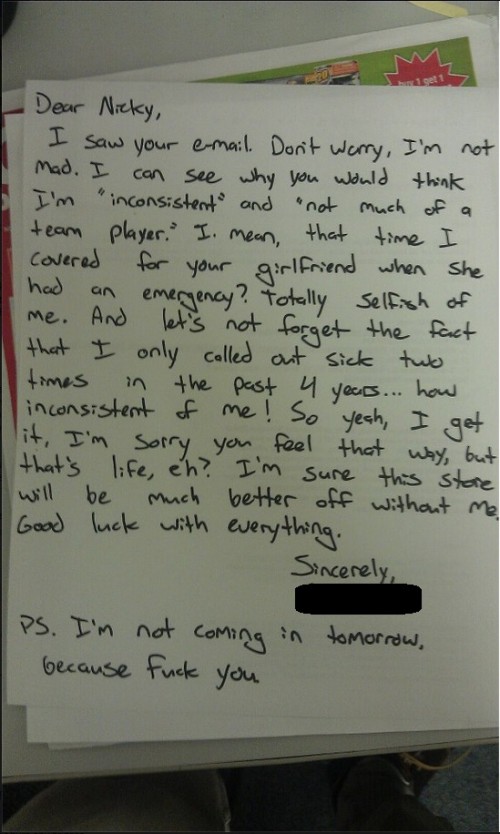 buy 1 get 1
Dear Nicky,
I saw your e-mail. Don't worry, I'm not
mad. I can see why you would think
I'm "inconsistent" and "not much of a
team player." I mean, that time I
covered for your girlfriend when she
had an emergency? Totally selfish of
me. And let's not forget the fact
that I only called out sick two
times in the past 4 years... how
inconsistent of me! So yeah, I get
it, I'm sorry you feel that way, but
that's life, eh? I'm sure this store
will be much better off without me.
Good luck with everything.
Sincerely,
PS. I'm not coming in tomorrow,
because fuck you